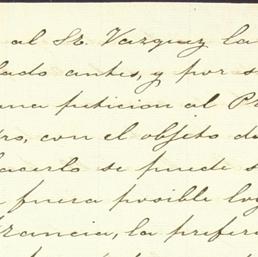 al Sr. Vazquez la
lado antes, y por s
una peticion al P
ro, con el objeto de
hacerlo se puede s
fuera posible lo
Francia, la prefer